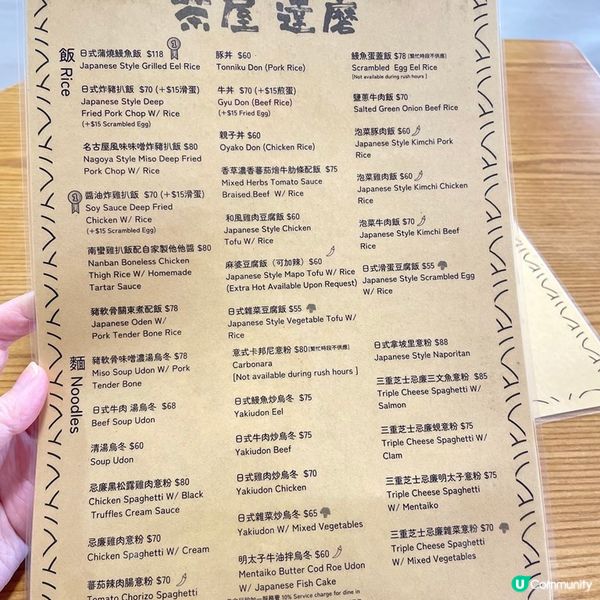 茶屋 達磨
飯 Rice
日式蒲燒鰻魚飯 $118
Japanese Style Grilled Eel Rice
日式炸豬扒飯 $70 (+$15滑蛋)
Japanese Style Deep
Fried Pork Chop W/ Rice
(+$15 Scrambled Egg)
名古屋風味味噌炸豬扒飯 $80
Nagoya Style Miso Deep Fried
Pork Chop W/ Rice
醬油炸雞扒飯 $70 (+$15滑蛋)
Soy Sauce Deep Fried
Chicken W/ Rice
(+$15 Scrambled Egg)
南蠻雞扒飯配自家製他他醬 $80
Nanban Boneless Chicken
Thigh Rice W/ Homemade
Tartar Sauce
豬軟骨關東煮配飯 $78
Japanese Oden W/
Pork Tender Bone Rice
豚丼 $60
Tonniku Don (Pork Rice)
牛丼 $70 (+$15煎蛋)
Gyu Don (Beef Rice)
(+$15 Fried Egg)
親子丼 $60
Oyako Don (Chicken Rice)
香草濃香蕃茄燴牛肋條配飯 $75
Mixed Herbs Tomato Sauce
Braised Beef W/ Rice
和風雞肉豆腐飯 $60
Japanese Style Chicken
Tofu W/ Rice
麻婆豆腐飯（可加辣）$60
Japanese Style Mapo Tofu W/ Rice
(Extra Hot Available Upon Request)
日式雜菜豆腐飯 $55
Japanese Style Vegetable Tofu W/
Rice
鰻魚蛋蓋飯 $78 [繁忙時段不供應]
Scrambled Egg Eel Rice
[Not available during rush hours ]
鹽蔥牛肉飯 $70
Salted Green Onion Beef Rice
泡菜豚肉飯 $60
Japanese Style Kimchi Pork
Rice
泡菜雞肉飯 $60
Japanese Style Kimchi Chicken
Rice
泡菜牛肉飯 $70
Japanese Style Kimchi Beef
Rice
日式滑蛋豆腐飯 $55
Japanese Style Scrambled Egg
W/ Rice
麵 Noodles
豬軟骨味噌濃湯烏冬 $78
Miso Soup Udon W/ Pork
Tender Bone
日式牛肉 湯烏冬 $68
Beef Soup Udon
清湯烏冬 $60
Soup Udon
忌廉黑松露雞肉意粉 $80
Chicken Spaghetti W/ Black
Truffles Cream Sauce
忌廉雞肉意粉 $70
Chicken Spaghetti W/ Cream
蕃茄辣肉腸意粉 $70
Tomato Chorizo Spaghetti
意式卡邦尼意粉 $80 [繁忙時段不供應]
Carbonara
[Not available during rush hours ]
日式鰻魚炒烏冬 $75
Yakiudon Eel
日式牛肉炒烏冬 $75
Yakiudon Beef
日式雞肉炒烏冬 $70
Yakiudon Chicken
日式雜菜炒烏冬 $65
Yakiudon W/ Mixed Vegetables
明太子牛油拌烏冬 $60
Mentaiko Butter Cod Roe Udon
W/ Japanese Fish Cake
日式拿坡里意粉 $88
Japanese Style Naporitan
三重芝士忌廉三文魚意粉 $85
Triple Cheese Spaghetti W/
Salmon
三重芝士忌廉蜆意粉 $75
Triple Cheese Spaghetti W/
Clam
三重芝士忌廉明太子意粉 $75
Triple Cheese Spaghetti
W/ Mentaiko
三重芝士忌廉雜菜意粉 $70
Triple Cheese Spaghetti
W/ Mixed Vegetables
10% Service charge for dine in
U Community